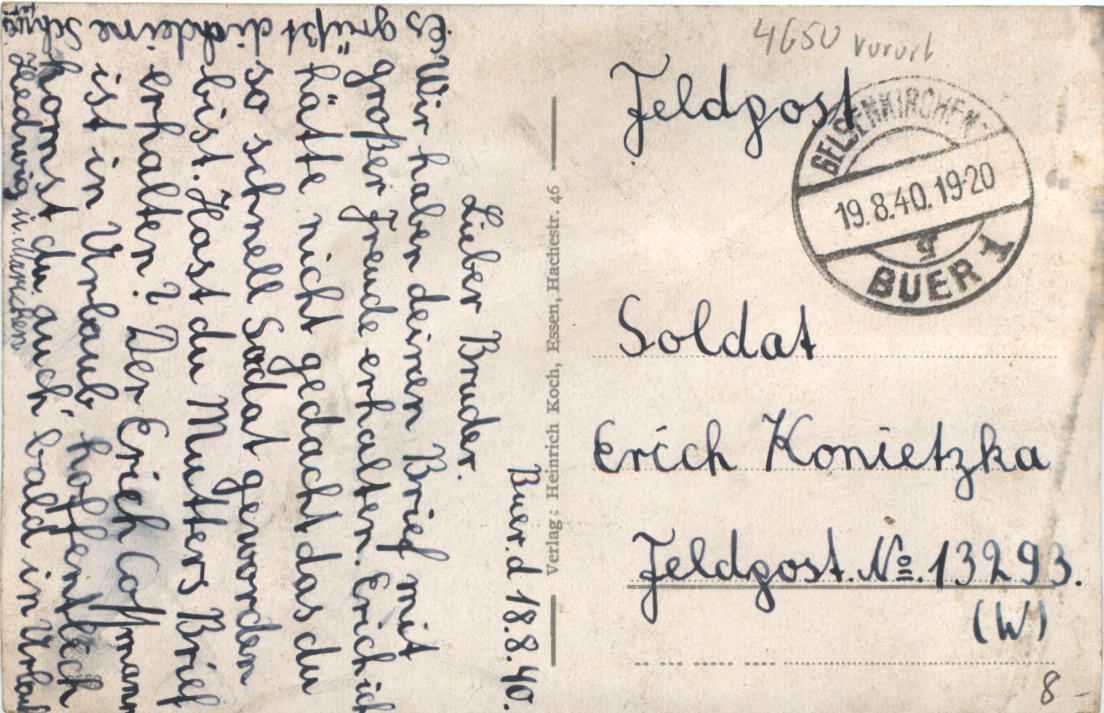 Buer. d 18.8.40.
Lieber Bruder.
Wir haben deinen Brief mit
großer Freude erhalten. Erich ich
hätte nicht gedacht das du
so schnell Sodat geworden
bist. Hast du Mutters Brief
erhalten? Der Erich Coffmann
ist in Urbaub, hoffentlich
komst du auch bald in Urlaub
Es grüßt dich deine Schwe
ster
Hedwig u.
Verlag: Heinrich Koch, Essen, Hachestr. 46
4650 Vorort
Feldpost
GELSENKIRCHEN-
19.8.40.19-20
g
BUER 1
Soldat
Erich Konietzka
Feldpost. No. 13293.
(W)
8-